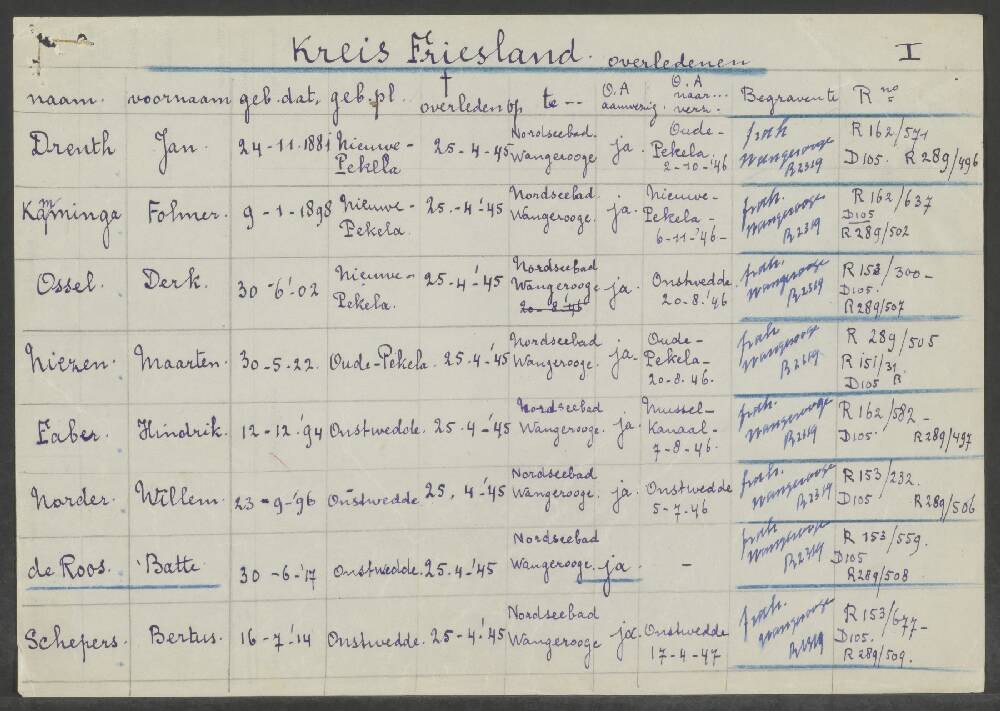 Kreis Friesland. overledenen I
naam. voornaam geb. dat. geb. pl. † overleden op te -- O.A aanwezig. O.A naar... verz. Begraven te R no
Drenth Jan. 24-11-1881 Nieuwe-Pekela 25-4-45 Nordseebad. Wangerooge ja. Oude-Pekela. 2-10-'46 Wangerooge R2319 R 162/571 D105. R 289/496
Kamminga Folmer. 9-1-1898 Nieuwe-Pekela. 25.-4-'45 Nordseebad Wangerooge. ja. Nieuwe-Pekela- 6-11-'46- Wangerooge R2319 R 162/637 D105 R 289/502
Ossel. Derk. 30-6-'02 Nieuwe-Pekela. 25-4-'45 Nordseebad Wangerooge 20-8-'46 ja. Onstwedde. 20-8.'46 Wangerooge R2319 R 153/300- D105. R 289/507
Niezen. Maarten. 30-5-22. Oude-Pekela. 25.4-'45 Nordseebad Wangerooge. ja- Oude-Pekela- 20-8.46. Wangerooge R2319 R 289/505 R 151/31 D105 B
Faber. Hindrik. 12-12-'94 Onstwedde. 25.4-'45 Nordseebad Wangerooge. ja. Mussel-Kanaal- 7-8-46. Wangerooge R2319 R 162/582- D105. R 289/497
Norder. Willem. 23-9-'96 Onstwedde 25, 4-'45 Nordseebad Wangerooge. ja. Onstwedde 5-7-46 Wangerooge R2319 R 153/232. D105 R 289/506
de Roos. Batte. 30-6-'17 Onstwedde. 25.4-'45 Nordseebad Wangerooge. ja - Wangerooge R2319 R 153/559. D105 R 289/508
Schepers. Bertus. 16-7-'14 Onstwedde. 25-4-'45 Nordseebad Wangerooge ja. Onstwedde 17-4-47 Wangerooge R2319 R 153/677- D105. R 289/509.